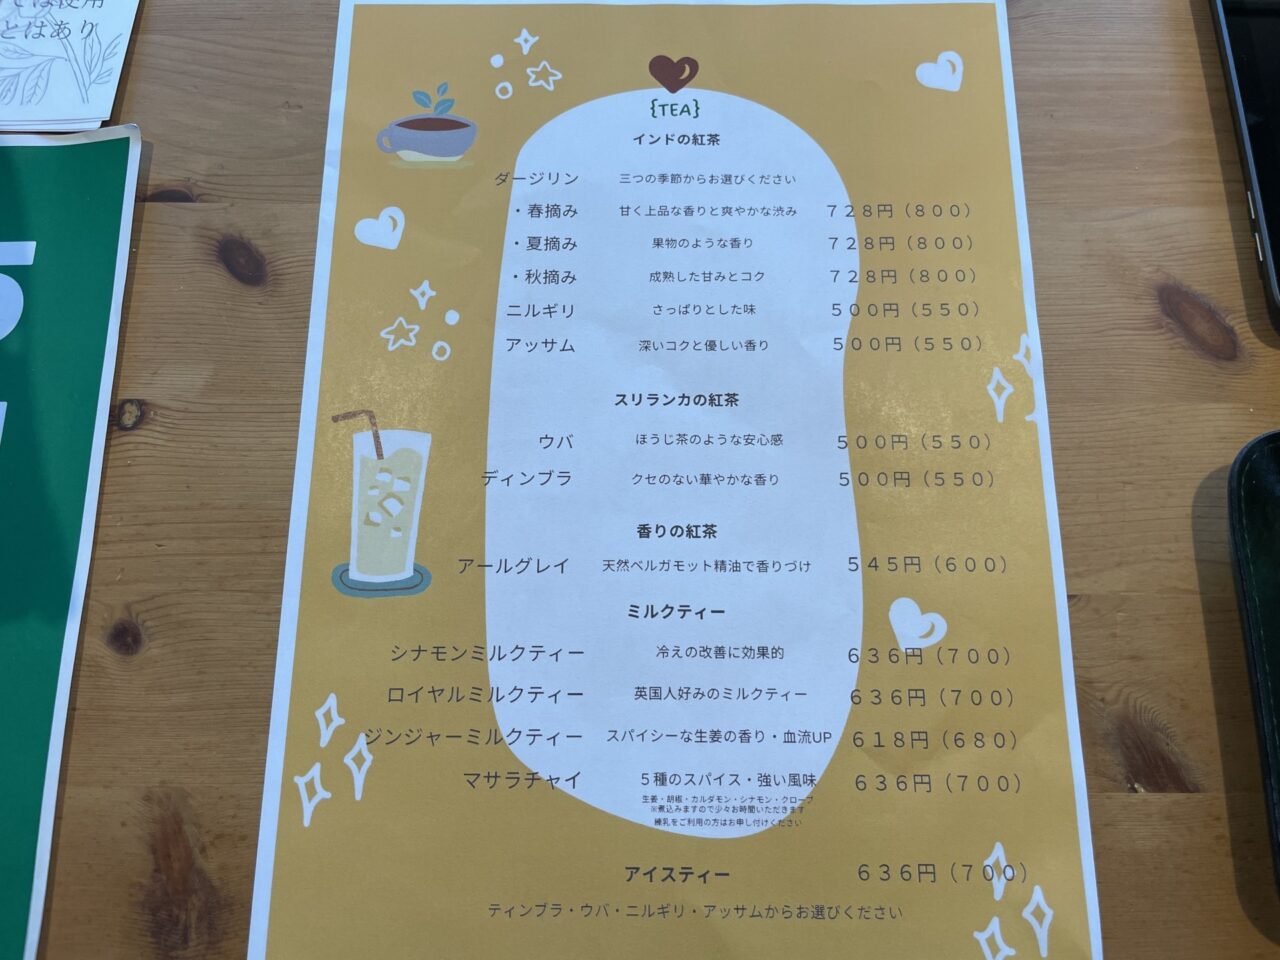 とはあり
{TEA}
インドの紅茶
ダージリン 三つの季節からお選びください
・春摘み 甘く上品な香りと爽やかな渋み 728円（800）
・夏摘み 果物のような香り 728円（800）
・秋摘み 成熟した甘みとコク 728円（800）
ニルギリ さっぱりとした味 500円（550）
アッサム 深いコクと優しい香り 500円（550）
スリランカの紅茶
ウバ ほうじ茶のような安心感 500円（550）
ディンブラ クセのない華やかな香り 500円（550）
香りの紅茶
アールグレイ 天然ベルガモット精油で香りづけ 545円（600）
ミルクティー
シナモンミルクティー 冷えの改善に効果的 636円（700）
ロイヤルミルクティー 英国人好みのミルクティー 636円（700）
ジンジャーミルクティー スパイシーな生姜の香り・血流UP 618円（680）
マサラチャイ 5種のスパイス・強い風味 636円（700）
生姜・胡椒・カルダモン・シナモン・クローブ
※煮込みますので少々お時間いただきます
練乳をご利用の方はお申し付けください
アイスティー 636円（700）
ティンブラ・ウバ・ニルギリ・アッサムからお選びください